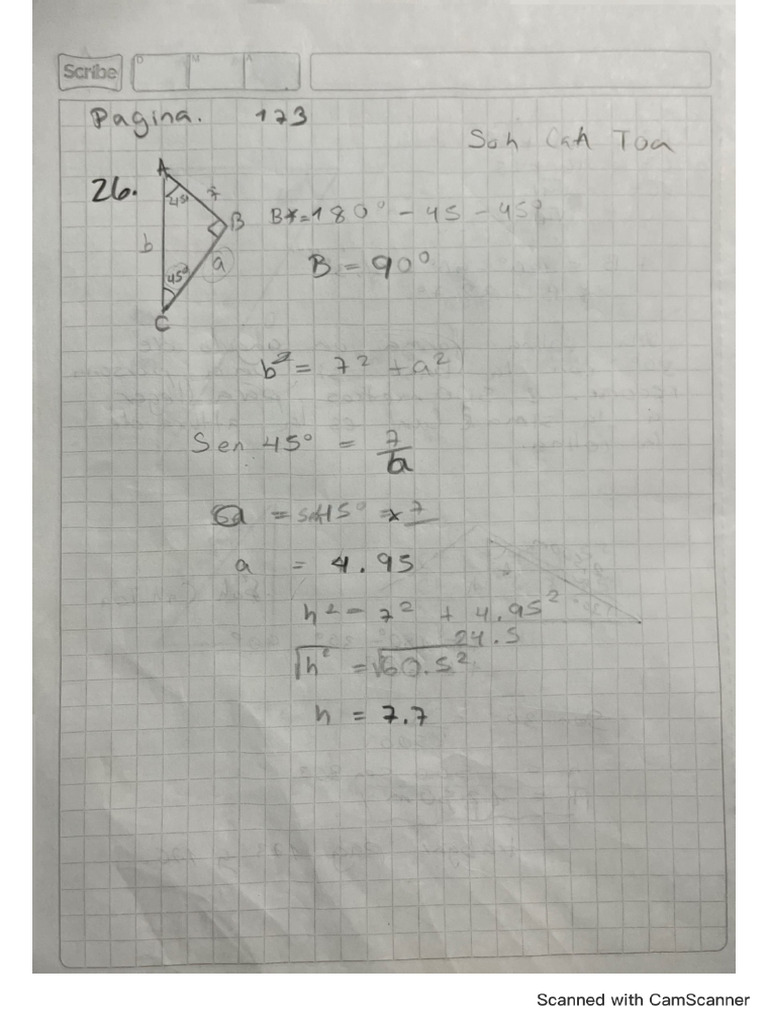 Scribe D M A
Pagina. 173
Soh Cah Toa
26. A 45° 7 B B=180° - 45 - 45°
b 45° a
C
B = 90°
b² = 7² + a²
Sen 45° = 7/a
a = sen45° x 7
a = 4.95
h² = 7² + 4.95²
24.5
√h² = √60.5²
h = 7.7
Scanned with CamScanner